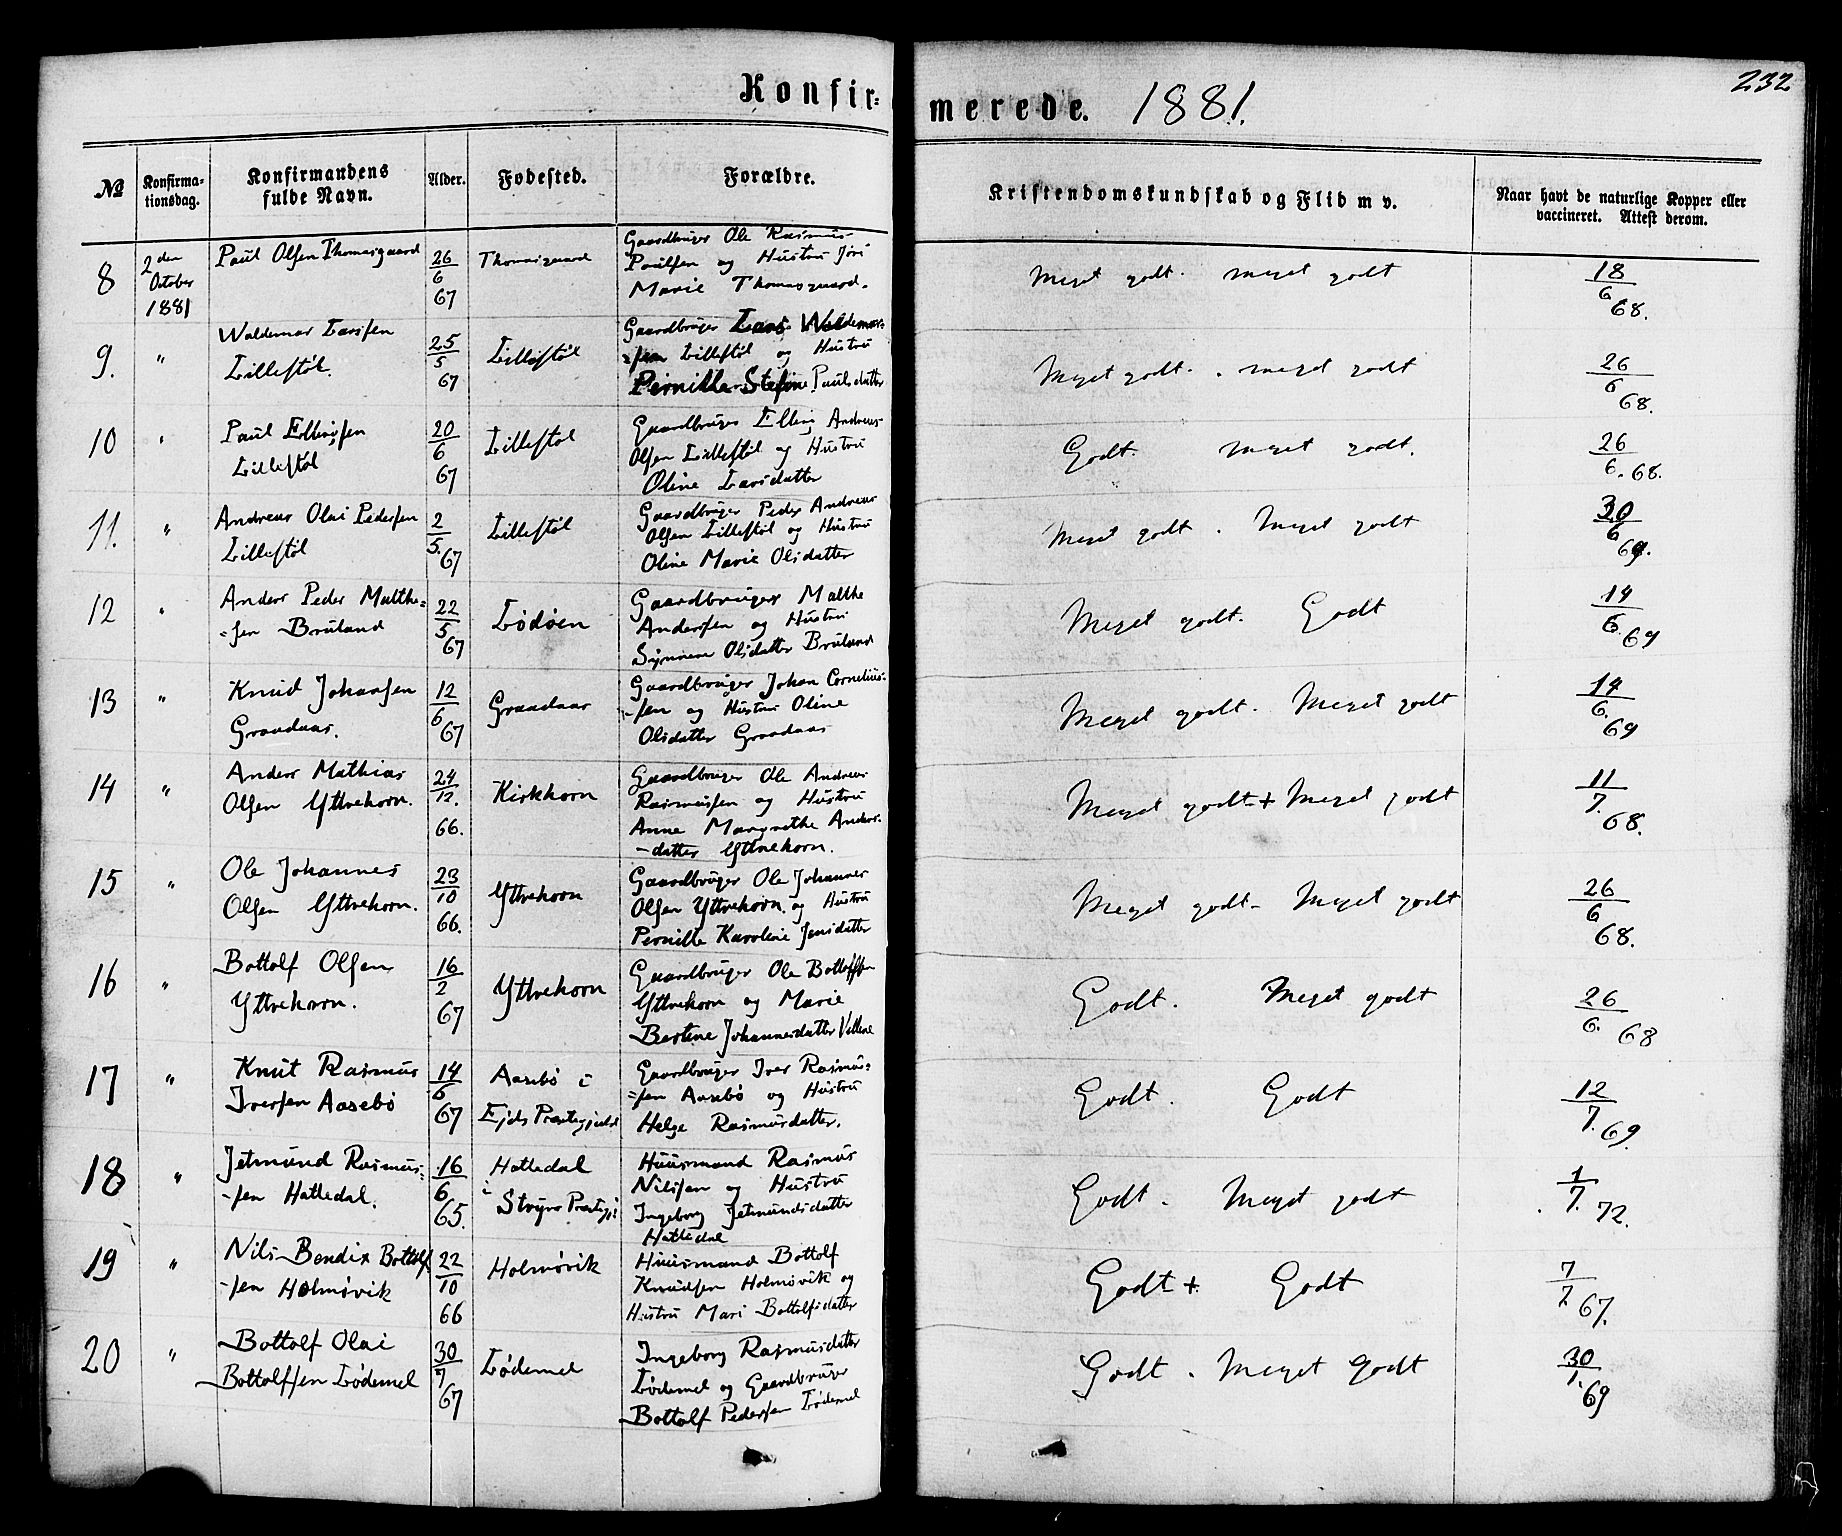 Konfir=
merede. 1881.
232
№
Konfirma-
tionsdag.
Konfirmandens
fulde Navn.
Alder.
Fødested.
Forældre.
Kristendomskundskab og Flid m v.
Naar havt de naturlige Kopper eller
vaccineret. Attest derom.
8
2den
October
1881
Paul Olsen Thomasgaard
26
6
67
Thomasgaard
Gaardbruger Ole Rasmus-
Paulsen og Hustru Jøri
Marie Thomasgaard.
Meget godt. meget godt
18
6
68.
9.
"
Waldemar Larssen
Lillestøl.
25
5
67
Lillestøl
Gaardbruger Lars Waldemar-
=sen Lillestøl og Hustru
Pernille Stefine Paulsdatter
Meget godt. . meget godt
26
6
68.
10
"
Paul Ellingsen
Lillestøl
20
6
67
Lillestøl
Gaardbruger Elling Andreas-
Olsen Lillestøl og Hustru
Oline Larsdatter
Godt. meget godt.
26
6. 68.
11.
"
Andreas Olai Pedersen
Lillestøl
2
5.
67
Lillestøl
Gaardbruger Peder Andreas
Olsen Lillestøl og Hustru
Oline Marie Olsdatter
Meget godt. Meget godt
30
6
69.
12
"
Anders Peder Malthe=
=sen Bruland
22
5
67
Lødøen
Gaardbruger Malthe
Andersen og Hustru
Synneve Olsdatter Bruland
Meget godt. Godt
14
6.
69
13
"
Knud Johansen
Graadaas.
12
6
67
Graadaas
Gaardbruger Johan Cornelius-
-sen og Hustru Oline
Olsdatter Graadaas
Meget godt. Meget godt
14
6.
69
14
"
Anders Mathias
Olsen Yttrehorn.
24
12.
66.
Kirkhorn
Gaardbruger Ole Andreas
Rasmussen og Hustru
Anne Margrethe Anders-
-datter Yttrehorn.
Meget godt + Meget godt
11
7.
68.
15
"
Ole Johannes
Olsen Yttrehorn.
23
10
66.
Yttrehorn
Gaardbruger Ole Johannes
Olsen Yttrehorn. og Hustru
Pernille Karoline Jensdatter
Meget godt- Meget godt
26
6
68.
16
"
Bottolf Olsen
Yttrehorn.
16
2
67
Yttrehorn
Gaardbruger Ole Bottolfsen
Yttrehorn og Marie
Bertine Johannesdatter
Godt. Meget godt
26
6.
68
17
"
Knut Rasmus
Iversen Aasebø
14
6
67
Aasebø i
Ejds Præstegjæld
Gaardbruger Iver Rasmus-
=sen Aasebø og Hustru
Helge Rasmusdatter.
Godt. Godt
12
7.
69.
18
"
Jetmund Rasmus-
-sen Hatledal.
16
6
65.
Hatledal
i
Stryns Præstgj:
Huusmand Rasmus
Nilssen og Hustru
Ingeborg Jetmundsdatter
Hatledal
Godt. Meget godt
1
7.
72.
19
"
Nils Bendix Bottolf
-sen Holmøvik
22
10
66
Holmøvik
Huusmand Bottolf
Knudsen Holmøvik og
Hustru Mari Bottolfsdatter
Godt + Godt
7
7
67.
20
"
Bottolf Olai
Bottolfsen Lødemel
30
7
67
Lødemel
Ingeborg Rasmusdatter
Lødemel og Gaardbruger
Bottolf Pedersen Lødemel
Godt. Meget Godt
30
7.
69